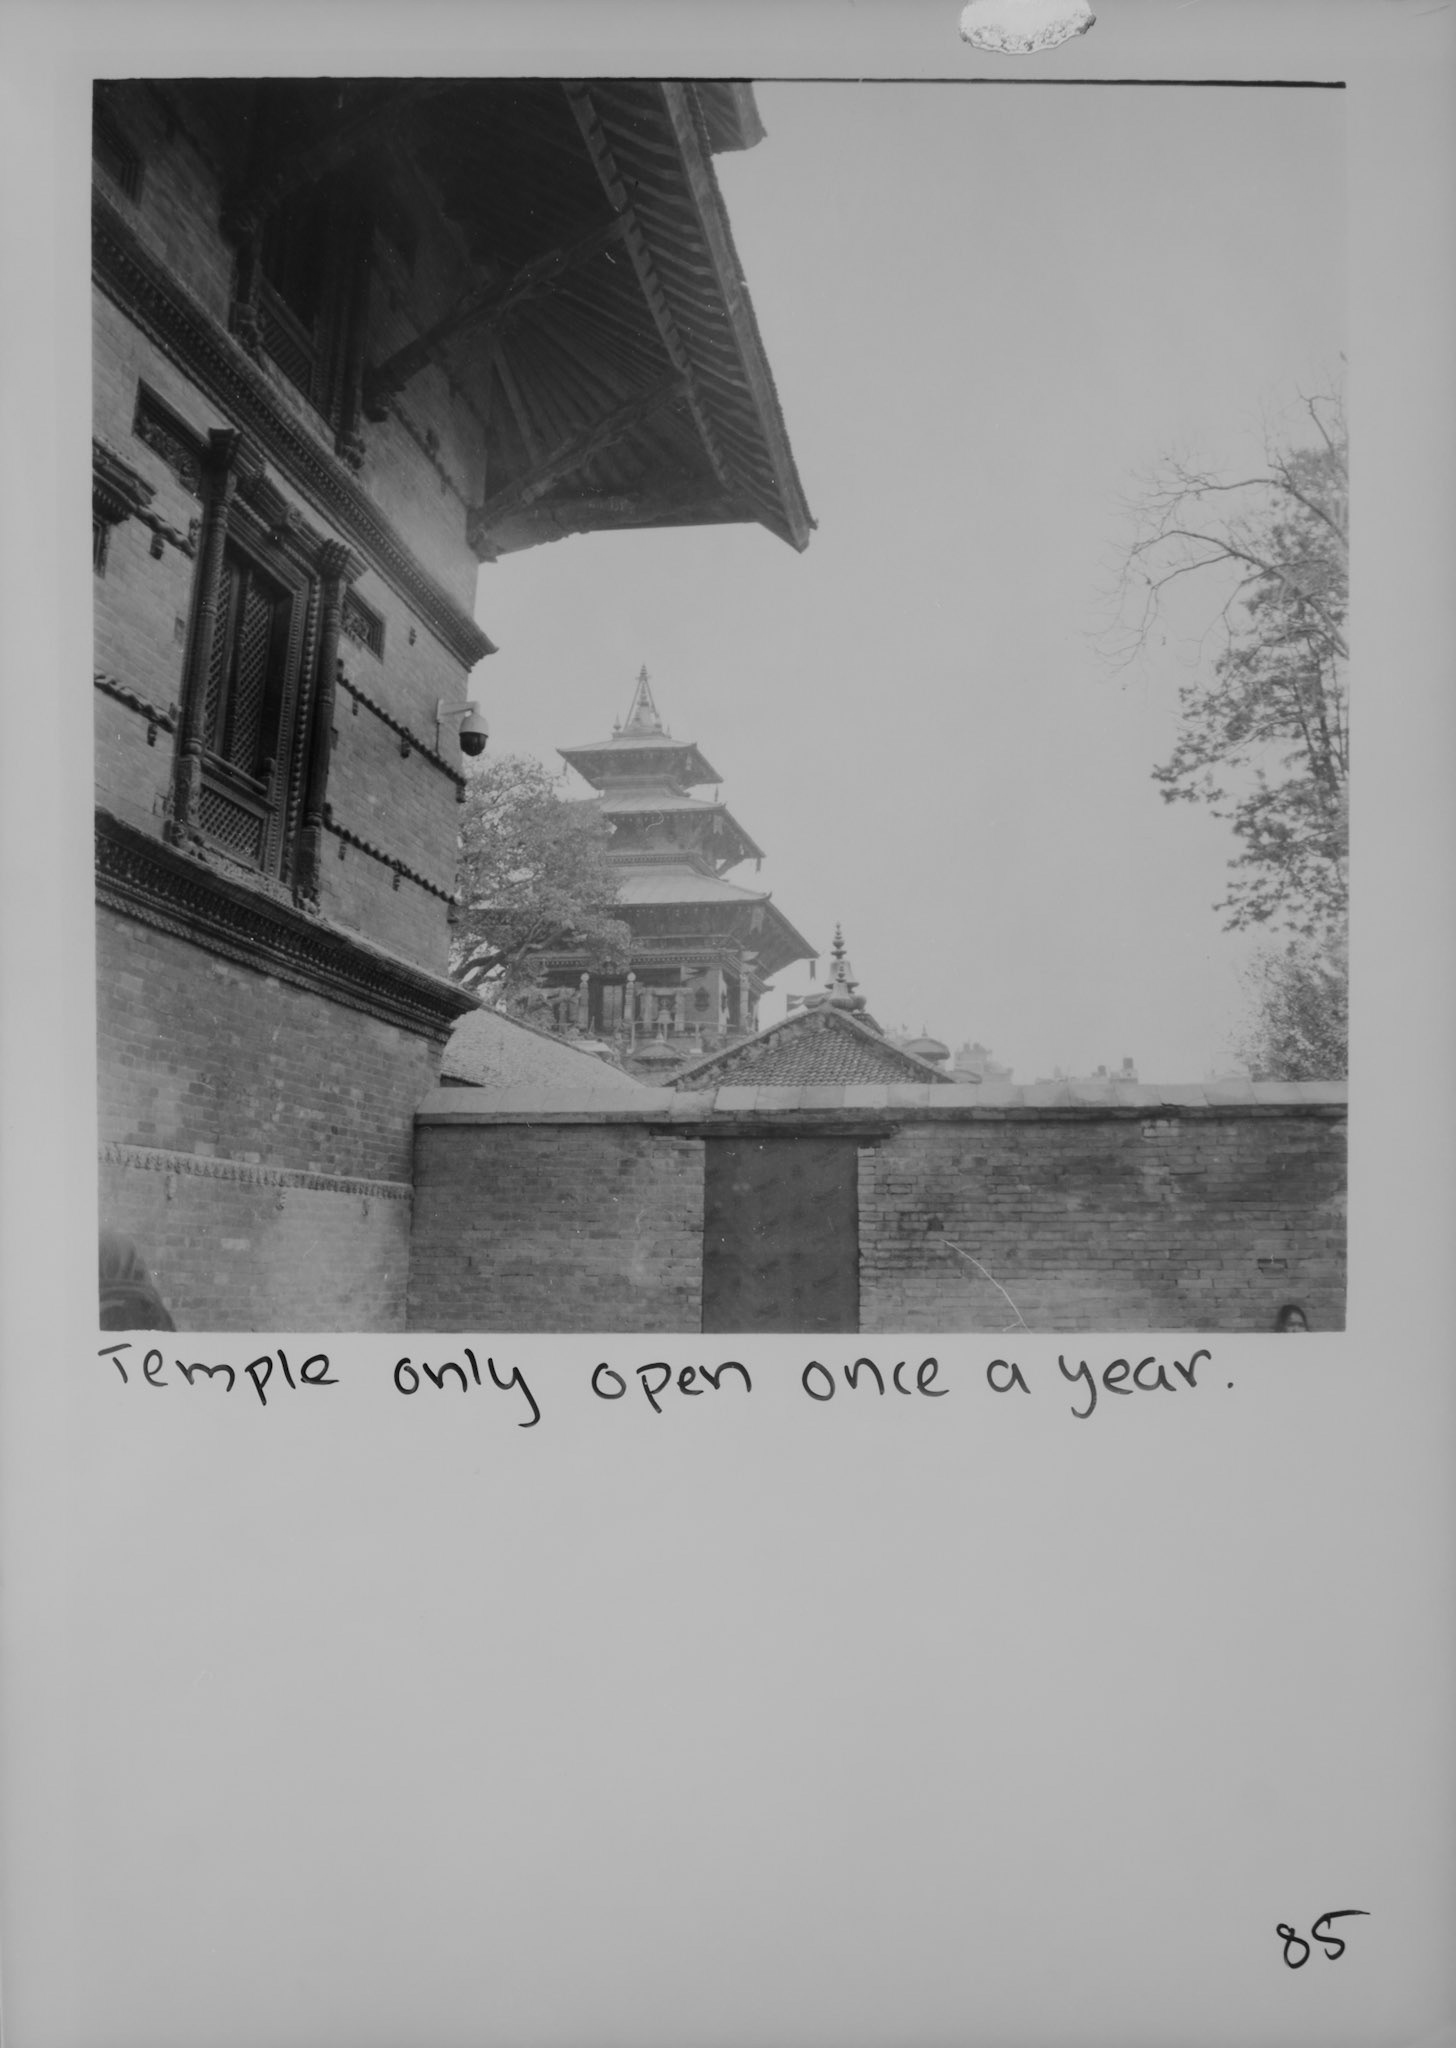 Temple only open once a year.
85